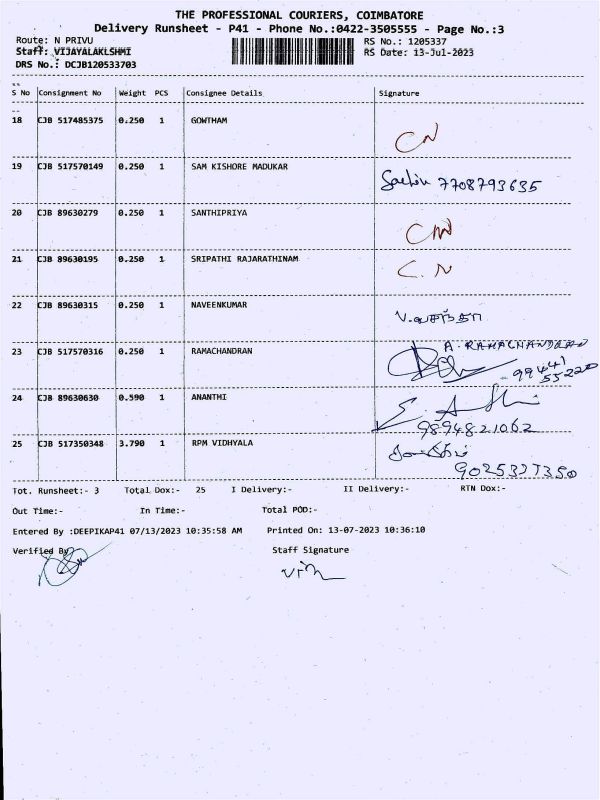 THE PROFESSIONAL COURIERS, COIMBATORE
Delivery Runsheet - P41 - Phone No.:0422-3505555 - Page No.:3
Route: N PRIVU RS No.: 1205337
Staff: VIJAYALAKLSHMI RS Date: 13-Jul-2023
DRS No.: DCJB120533703
S No Consignment No Weight PCS Consignee Details Signature
18 CJB 517485375 0.250 1 GOWTHAM
CN
19 CJB 517570149 0.250 1 SAM KISHORE MADUKAR
7708793635
20 CJB 89630279 0.250 1 SANTHIPRIYA
CN
21 CJB 89630195 0.250 1 SRIPATHI RAJARATHINAM
C. N
22 CJB 89630315 0.250 1 NAVEENKUMAR
V.வசந்தா
23 CJB 517570316 0.250 1 RAMACHANDRAN
A. RAMACHANDRAN
- 99441
55220
24 CJB 89630630 0.590 1 ANANTHI
9894821062
25 CJB 517350348 3.790 1 RPM VIDHYALA
Tot. Runsheet:- 3 Total Dox:- 25 I Delivery:- II Delivery:- RTN Dox:-
Out Time:- In Time:- Total POD:-
Entered By :DEEPIKAP41 07/13/2023 10:35:58 AM Printed On: 13-07-2023 10:36:10
Verified By Staff Signature